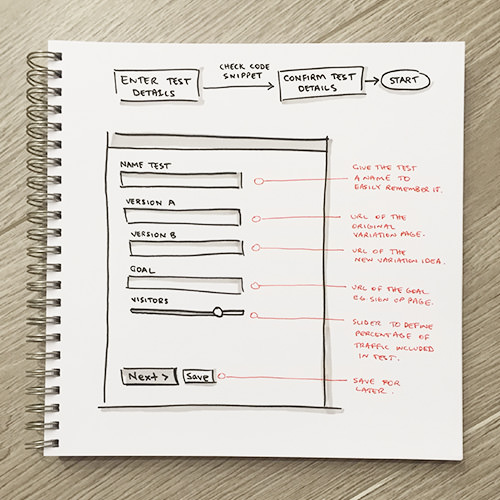 ENTER TEST
DETAILS
CHECK CODE
SNIPPET
CONFIRM TEST
DETAILS
START
NAME TEST
GIVE THE TEST
A NAME TO
EASILY REMEMBER IT.
VERSION A
URL OF THE
ORIGINAL
VARIATION PAGE.
VERSION B
URL OF THE
NEW VARIATION IDEA.
GOAL
URL OF THE GOAL
EG SIGN UP PAGE.
VISITORS
SLIDER TO DEFINE
PERCENTAGE OF
TRAFFIC INCLUDED
IN TEST.
Next >
Save
SAVE FOR
LATER.